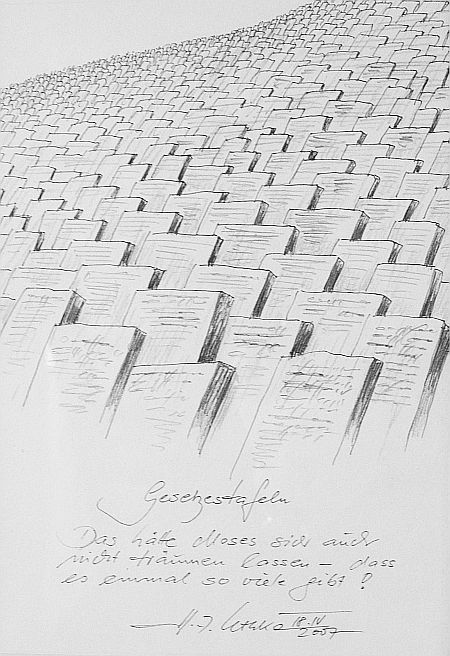 Gesetzestafeln
Das hätte Moses sich auch
nicht träumen lassen – dass
es einmal so viele gibt!
18.IV
2007